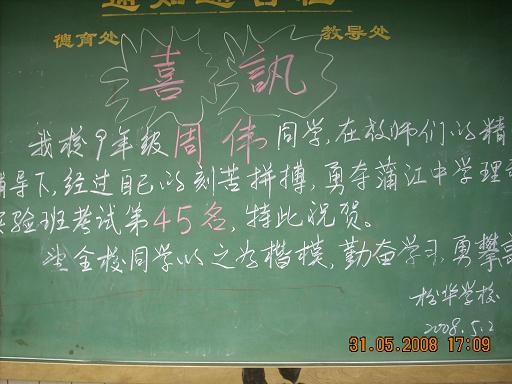 德育处
教导处
喜訊
我校9年级周伟同学,在教师们的精
辅导下,经过自己的刻苦拼搏,勇夺蒲江中学理
实验班考试第45名,特此祝贺。
全校同学以之为楷模,勤奋学习,勇攀高
松华学校
2008.5.2
31.05.2008 17:09